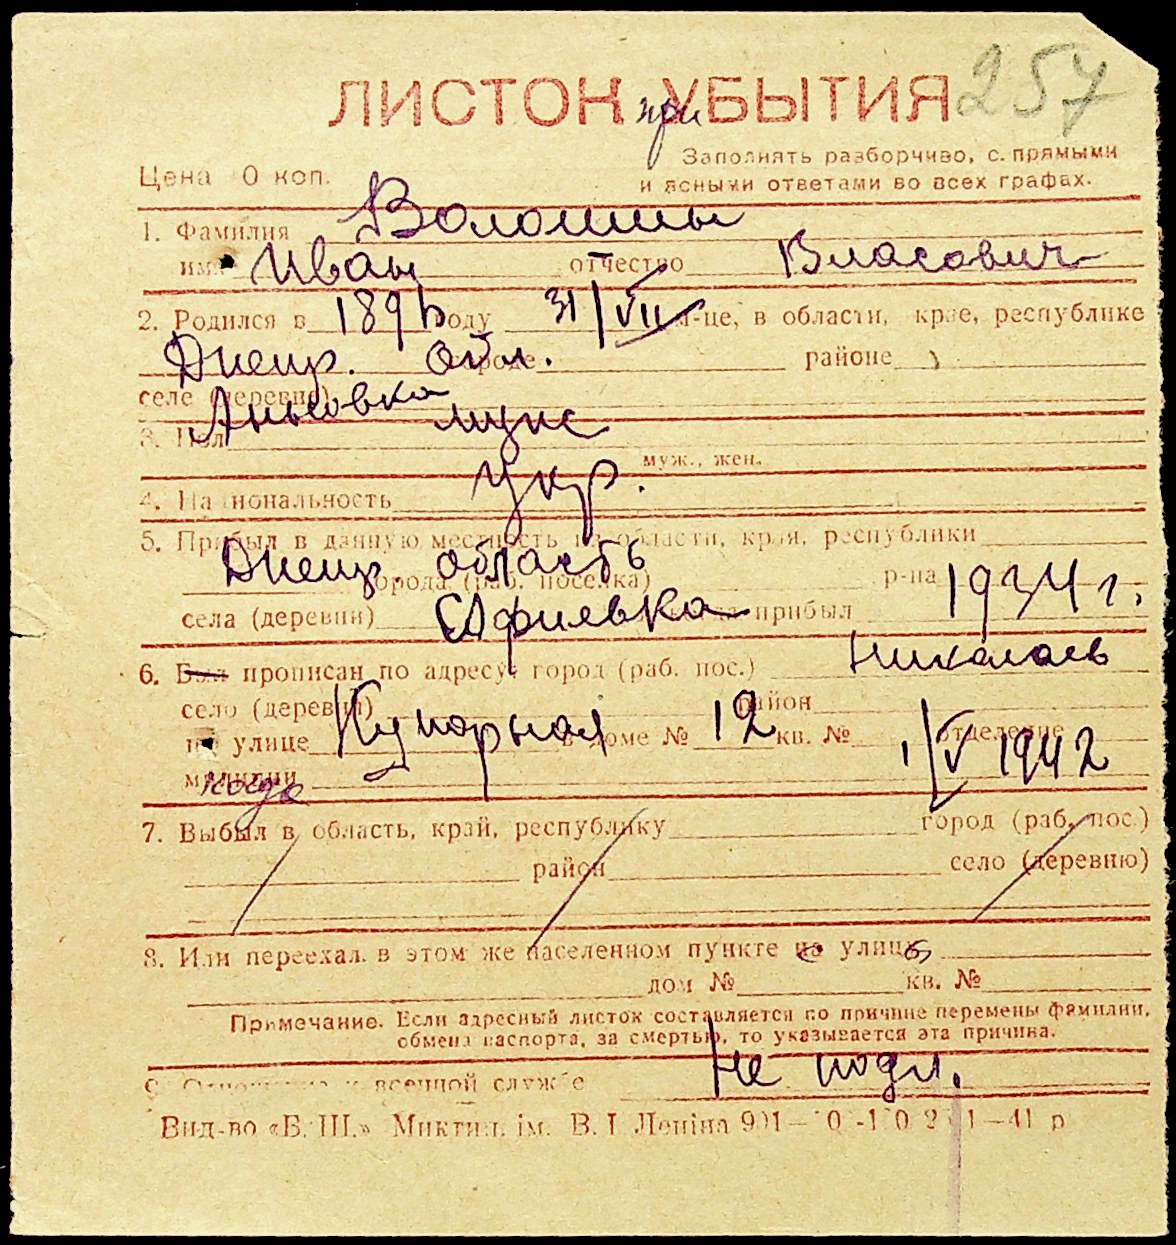 257
ЛИСТОК при УБЫТИЯ
Заполнять разборчиво, с прямыми
Цена 0 коп.
и ясными ответами во всех графах.
1. Фамилия Волошин
имя Иван отчество Власович
2. Родился в 1896 году 31/VII м-це, в области, крае, республике
Днепр. обл. городе районе
селе (деревне)
3. Пол муж
муж., жен.
4. Национальность укр.
5. Прибыл в данную местность из области, края, республики
Днепр. область города (раб. поселка) р-на
села (деревни) прибыл 1934 г.
6. Был прописан по адресу: город (раб. пос.) Николаев
село (деревня) район
по улице Купорная в доме № 12 кв. № отделение
милиции когда 1/V 1942
7. Выбыл в область, край, республику город (раб. пос.)
район село (деревню)
8. Или переехал в этом же населенном пункте на улицу
дом № кв. №
Примечание. Если адресный листок составляется по причине перемены фамилии,
обмена паспорта, за смертью, то указывается эта причина.
9. Отношение к военной службе Не подл.
Вид-во «Б. Ш.» Миктип. ім. В. І. Леніна